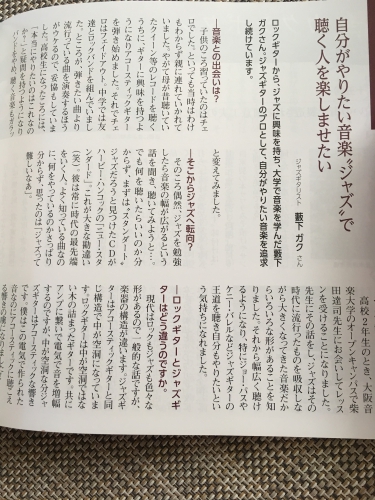 自分がやりたい音楽〝ジャズ〟で
聴く人を楽しませたい
ジャズギタリスト 藪下 ガク さん
ロックギターから、ジャズに興味を持ち、大学で音楽を学んだ藪下
ガクさん。ジャズギターのプロとして、自分がやりたい音楽を追求
し続けています。
―音楽との出会いは？
子供のころ習っていたのはチェ
ロでした。といっても当時はわけ
もわからず親に連れていかれて
いました。やがて母が聞いてい
たロック等のレコードを聴く
うちに、ギターに興味を持つよ
うになりアコースティックギター
を弾き始めました。それでチェ
ロはフェイドアウト、中学では友
達とロックバンドを組んでいまし
た。ところが、弾きたい曲より
流行っている曲を演奏するほう
が受けるので、妥協もしていま
した。高校生になったころに
「本当にやりたいのはこれなの
か？」と疑問を持つようになり
バンドをやめ、聴く音楽もガラッ
と変えてみました。
―そこからジャズへ転向？
そのころ偶然、〝ジャズを勉強
したら音楽の幅が広がるという
話を聞き、聴いてみようと…。
でも何を聴いたらいいのか分
からず、まず〝はスタンダード・
ジャズだろうと見つけたCDが
ハービー・ハンコックの『ニュー・スタ
ンダード』。これが大きな勘違い
（笑）。彼は常に時代の最先端
をいく人、よく知っている曲なの
に、何をやっているのかさっぱり
分からず、思ったのは〝ジャズって
難しいなぁ〟
高校2年生のとき、大阪音
楽大学のオープンキャンパスで柴
田達司先生にお会いしてレッス
ンを受けることになりました。
先生にその話をし、ジャズはその
時代に流行ったものを吸収しな
がら大きくなってきた音楽だか
らいろいろな形があることを知
りました。それから幅広く聴け
るようになり、特にジョー・パスや
ケニー・バレルなどジャズギターの
王道を聴き自分もやりたいとい
う気持ちになれました。
―ロックギターとジャズギ
ターはどう違うのですか。
現代はロックもジャズも色々な
形があるので一般的な話ですが、
楽器の構造が違います。ジャズギ
ターはアコースティックギターと同
じ構造で中が空洞になっていま
す。ロックギターは中が空洞でな
い木の詰まったギターです。共に
アンプに繋いで電気で音を増幅
するのですが、中が空洞な分ジャ
ズギターはアコースティックな響き
です。僕はこの電気で作られた
音なのにアコースティックに聴こえ